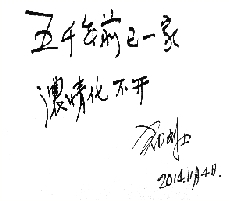 五千年前已一家
浓情化不开
2014.11.4日.